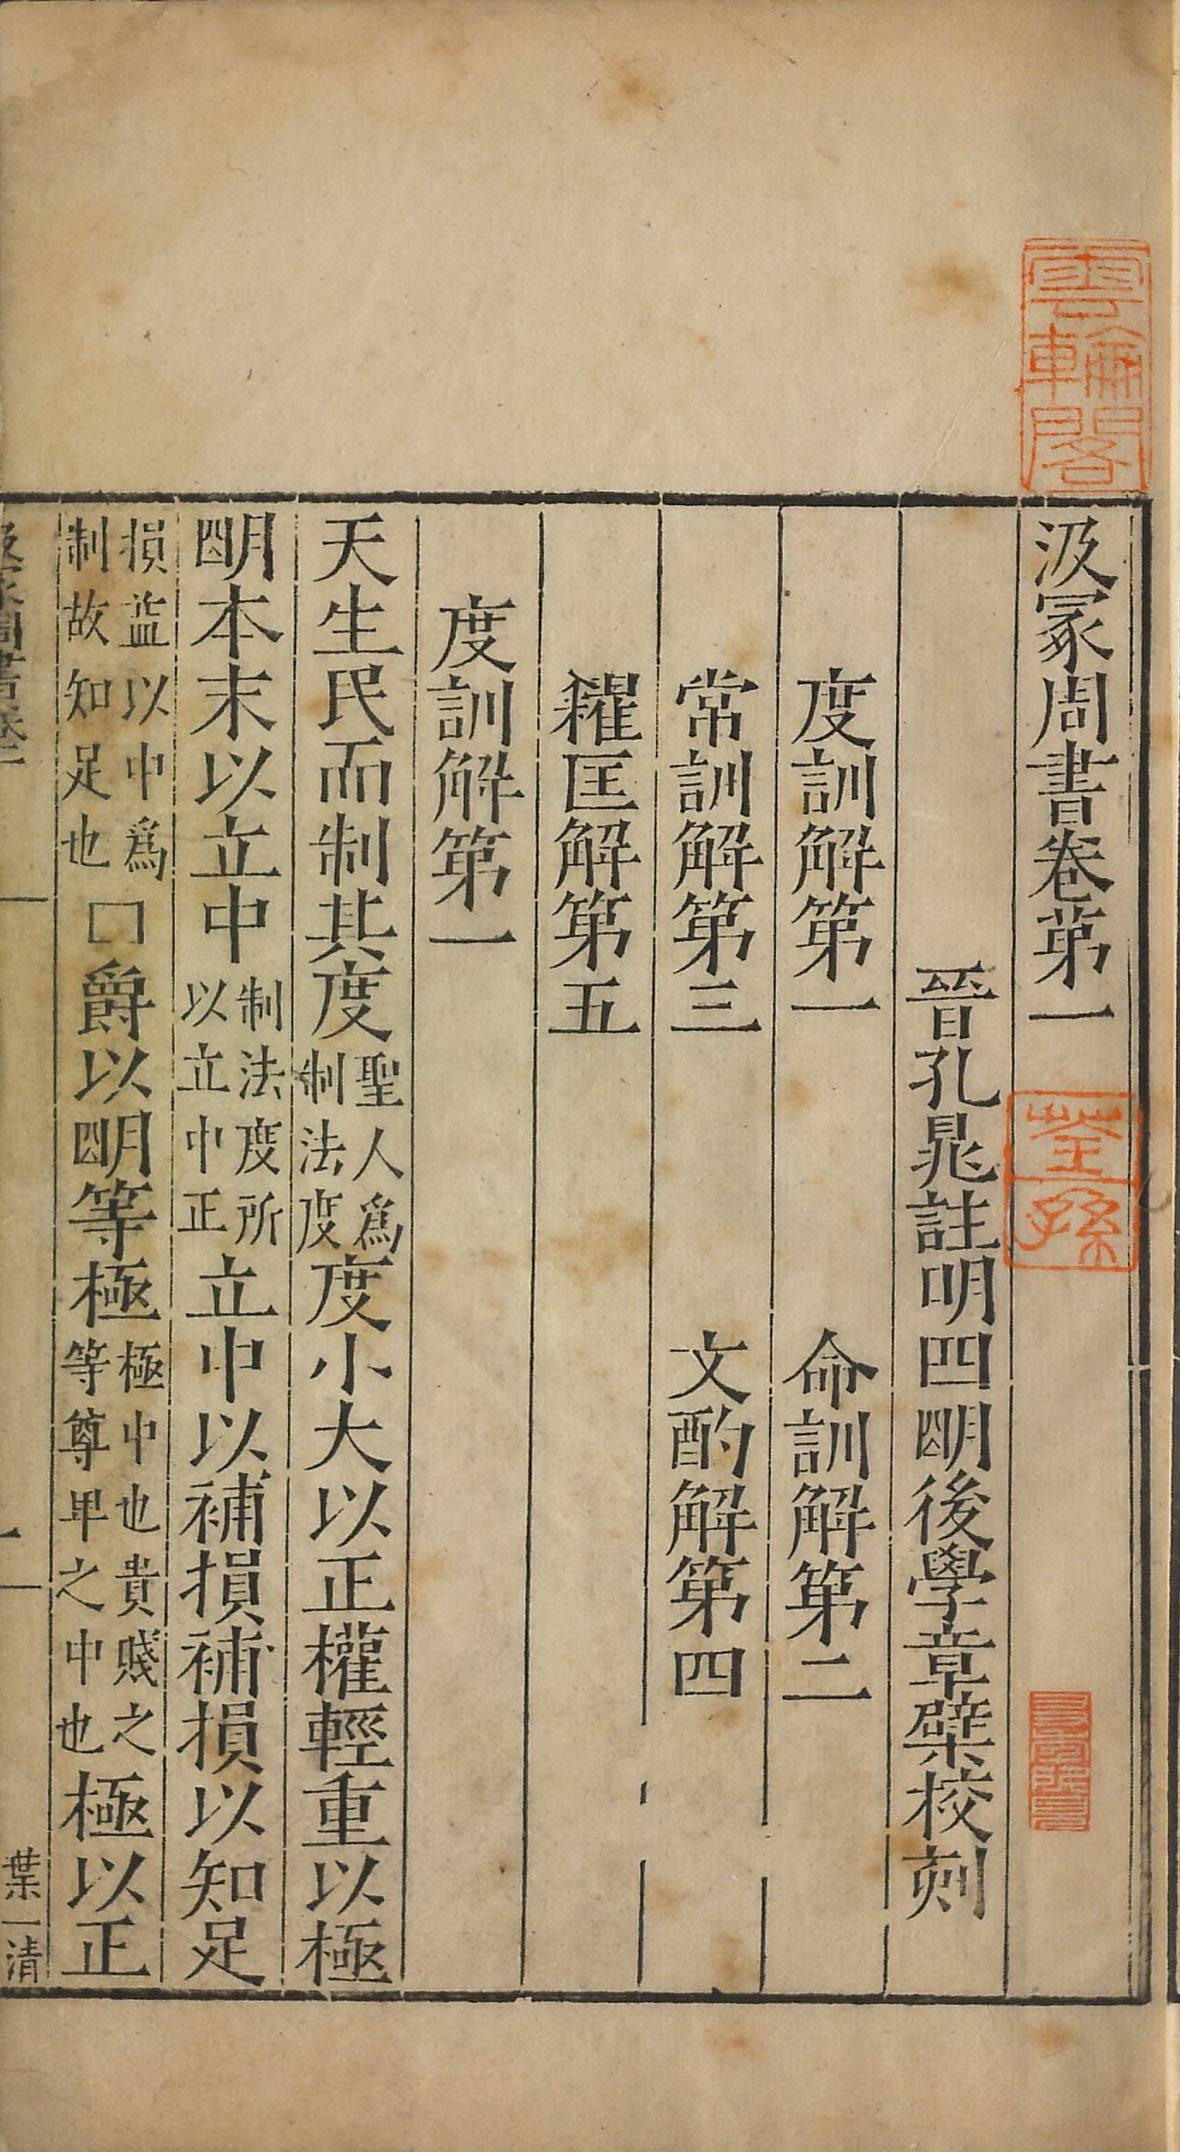 汲冢周書卷第一
晉孔晁註明四明後學章檗校刻
度訓解第一 命訓解第二
常訓解第三 文酌解第四
糴匡解第五
度訓解第一
天生民而制其度聖人為制法度度小大以正權輕重以極
明本末以立中制法度所以立中正立中以補損補損以知足
損益以中為制故知足也□爵以明等極極中也貴賤之等尊卑之中也極以正
葉一清
雲輪閣
荃孫